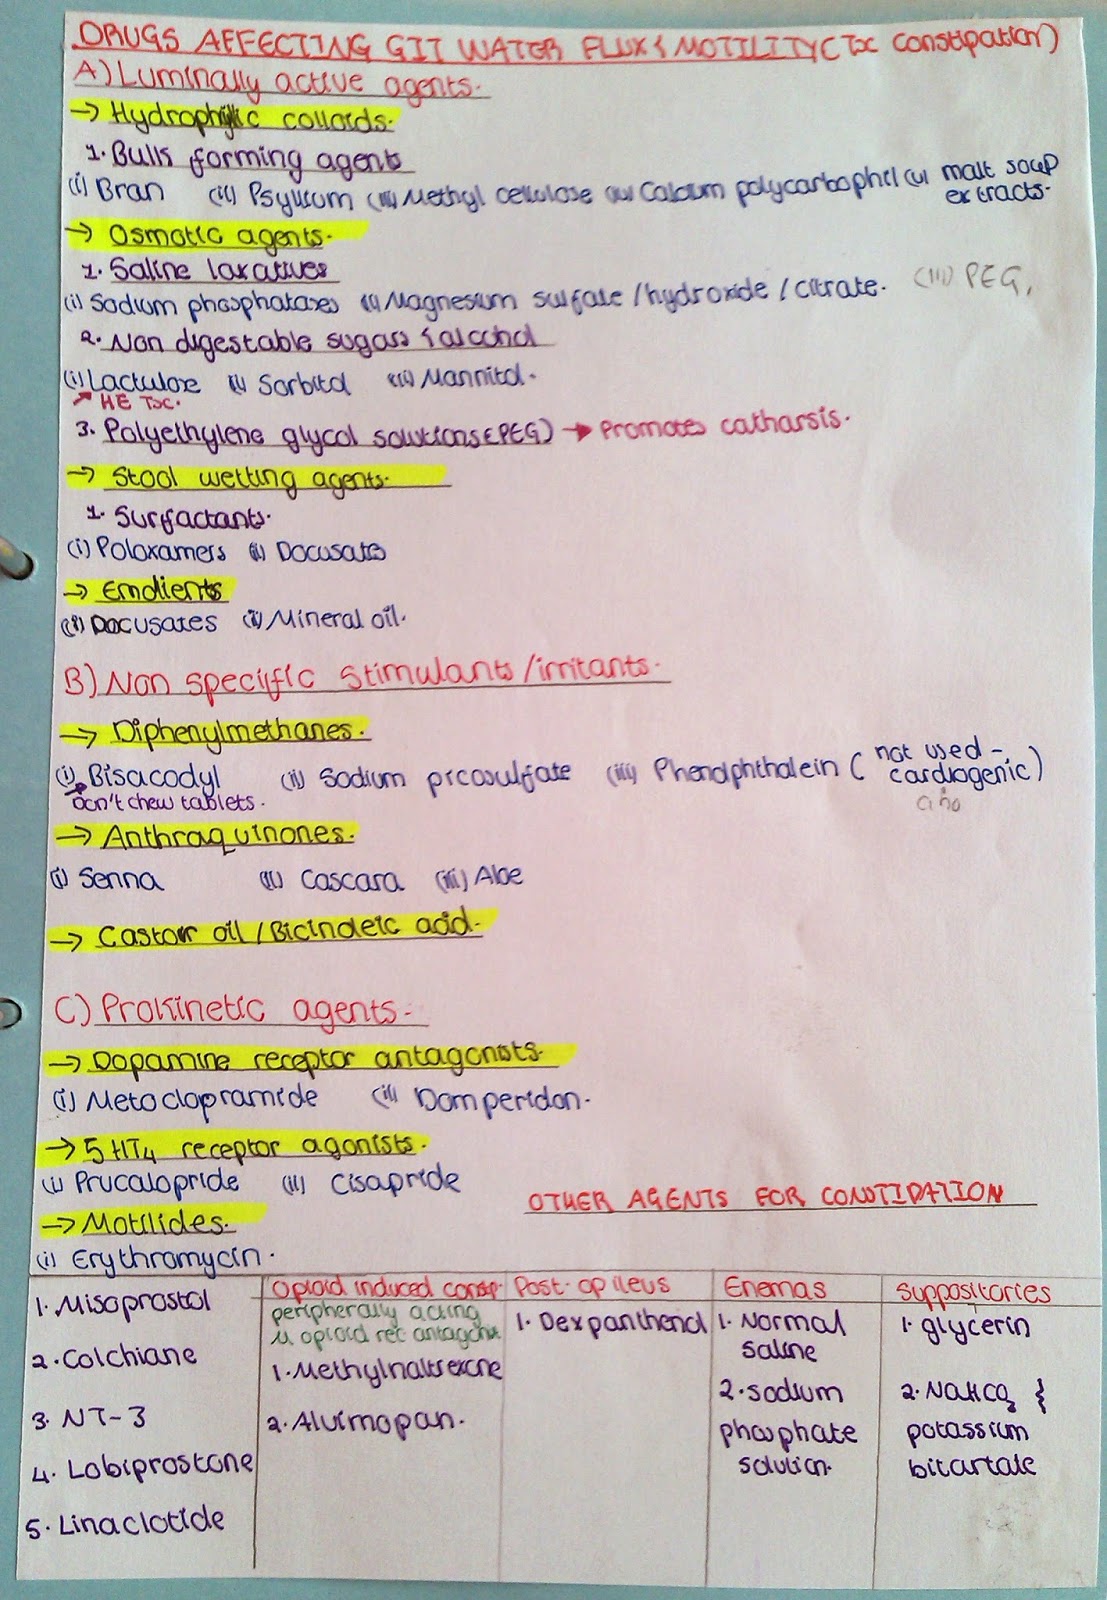 DRUGS AFFECTING GIT WATER FLUX & MOTILITY (Tx constipation)
A) Luminally active agents.
→ Hydrophylic colloids.
1. Bulk forming agents
(i) Bran (ii) Psyllium (iii) Methyl cellulose (iv) Calcium polycarbophil (v) malt soup
extracts.
→ Osmotic agents.
1. Saline laxatives
(i) Sodium phosphatases (ii) Magnesium sulfate / hydroxide / citrate. (iii) PEG.
2. Non digestable sugars & alcohol
(i) Lactulose (ii) Sorbitol (iii) Mannitol.
↗ HE Tx.
3. Polyethylene glycol solutions (PEG) → Promotes catharsis.
→ Stool wetting agents.
1. Surfactants.
(i) Poloxamers (ii) Docusates
→ Emollients
(i) Docusates (ii) Mineral oil.
B) Non specific stimulants / irritants.
→ Diphenylmethanes.
(i) Bisacodyl (ii) Sodium picosulfate (iii) Phenolphthalein ( not used -
cardiogenic )
Don't chew tablets.
→ Anthraquinones.
(i) Senna (ii) Cascara (iii) Aloe
→ Castor oil / Ricinoleic acid.
C) Prokinetic agents.
→ Dopamine receptor antagonists.
(i) Metoclopramide (ii) Domperidon.
→ 5HT4 receptor agonists.
(i) Prucalopride (ii) Cisapride
OTHER AGENTS FOR CONSTIPATION
→ Motilides.
(i) Erythromycin.
1. Misoprostol
2. Colchiane
3. NT-3
4. Lobiprostone
5. Linaclotide
Opioid induced consp.
peripherally acting
µ opioid rec antagonist
1. Methylnaltrexone
2. Alvimopan.
Post-op ileus
1. Dexpanthenol
Enemas
1. Normal
saline
2. sodium
phosphate
solution.
Suppositories
1. glycerin
2. NaHCO3 &
potassium
bitartate